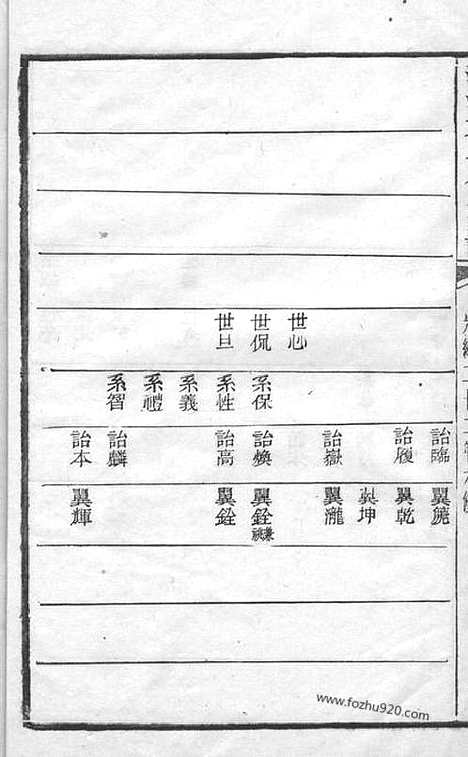 世心
世侃
世旦
系保
系性
系義
系禮
系智
詒臨
詒履
詒嶽
詒煥
詒高
詒麟
詒本
翼乾
翼坤
翼瀧
翼銓兼祧
翼銓
翼輝
www.fozhu920.com